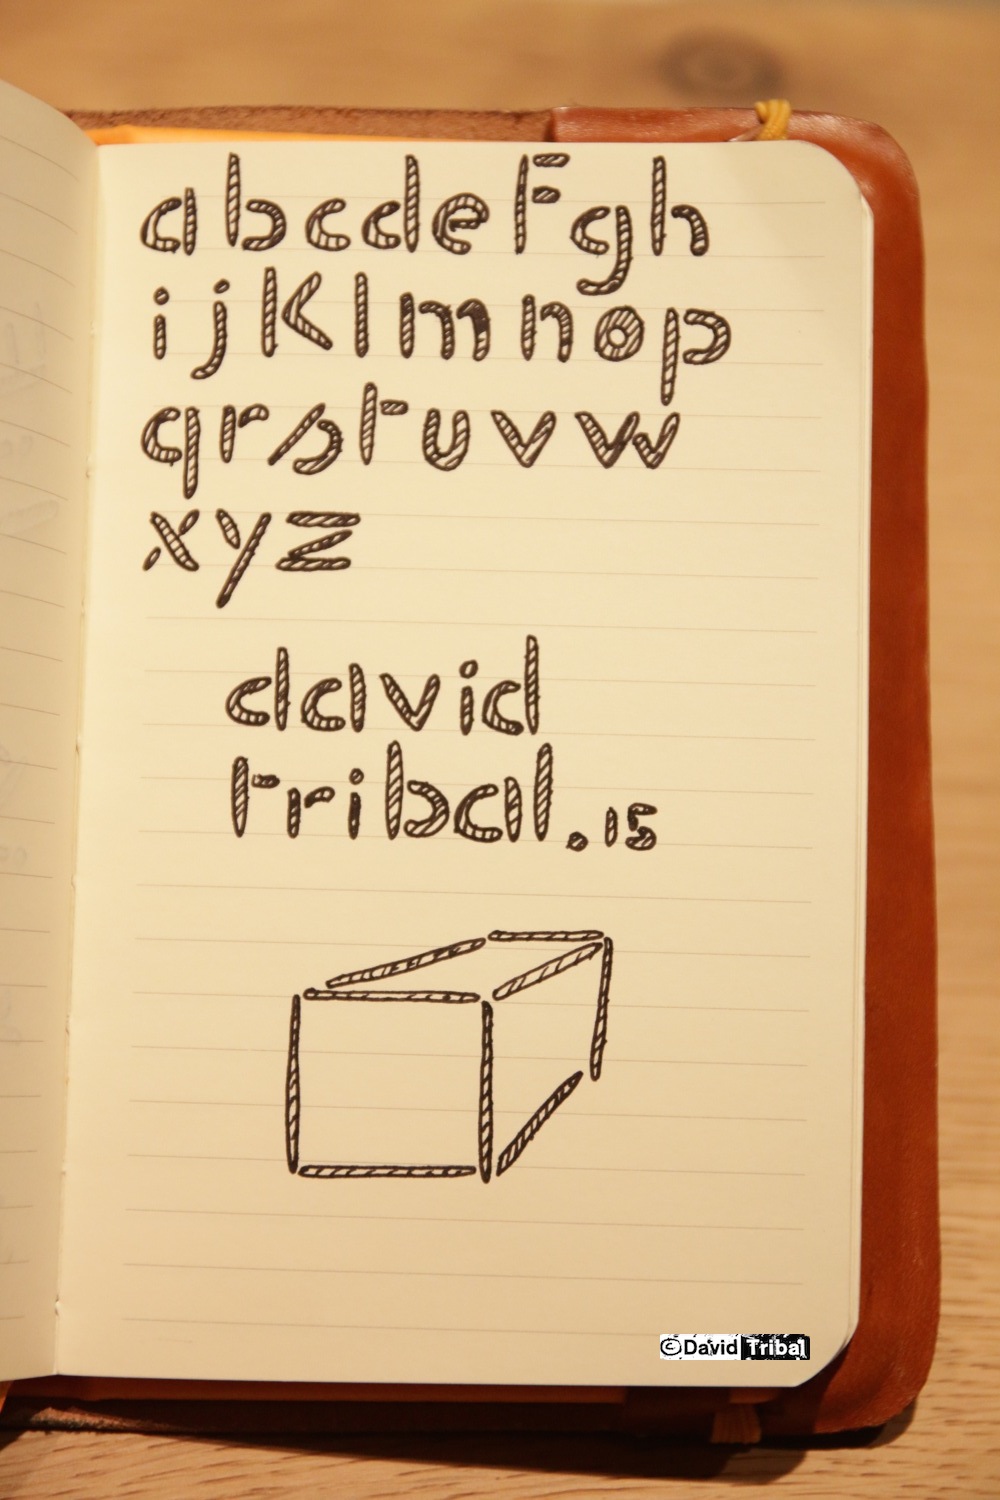 abcdeFgh
ijKlmnop
qrstuvw
xyz
david
tribal.15
©David Tribal